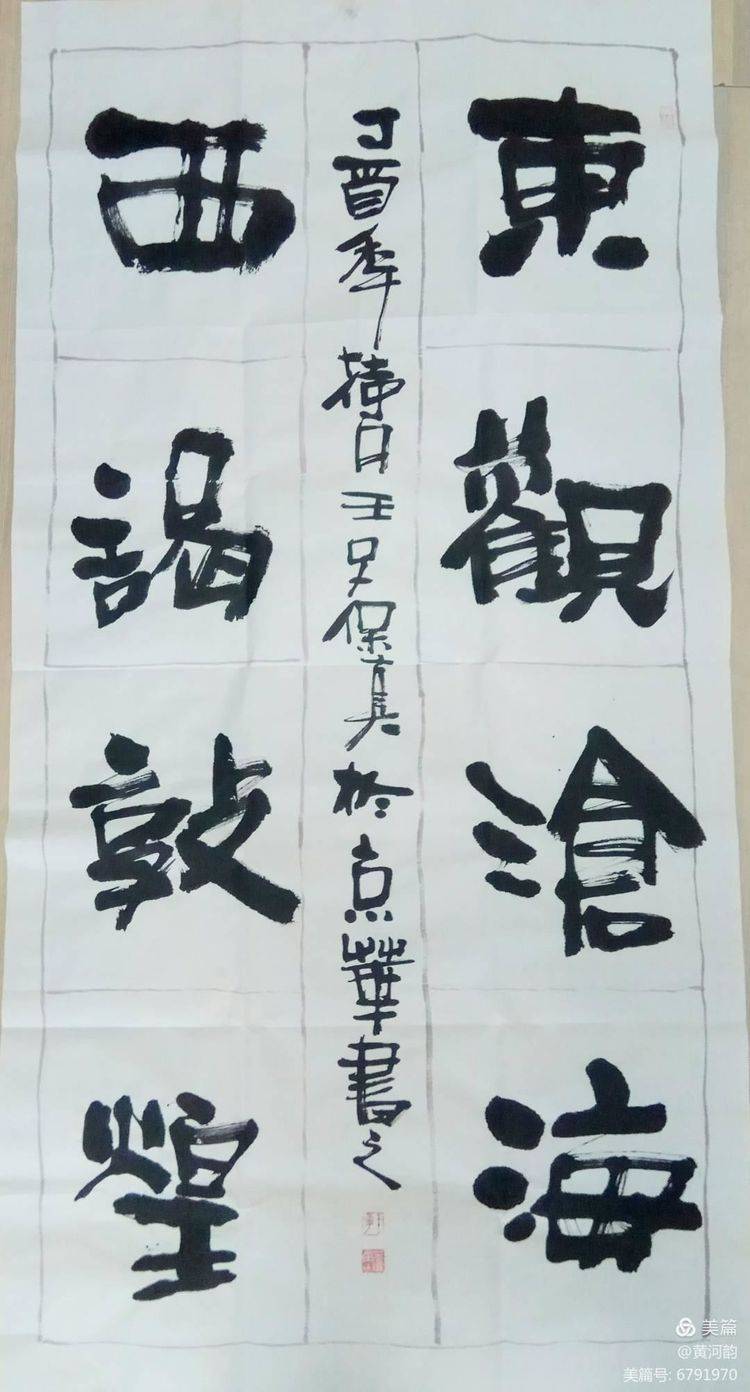 東觀滄海
丁酉年月王保真於京華書之
西謁敦煌
美篇
@黄河韵
美篇号: 6791970